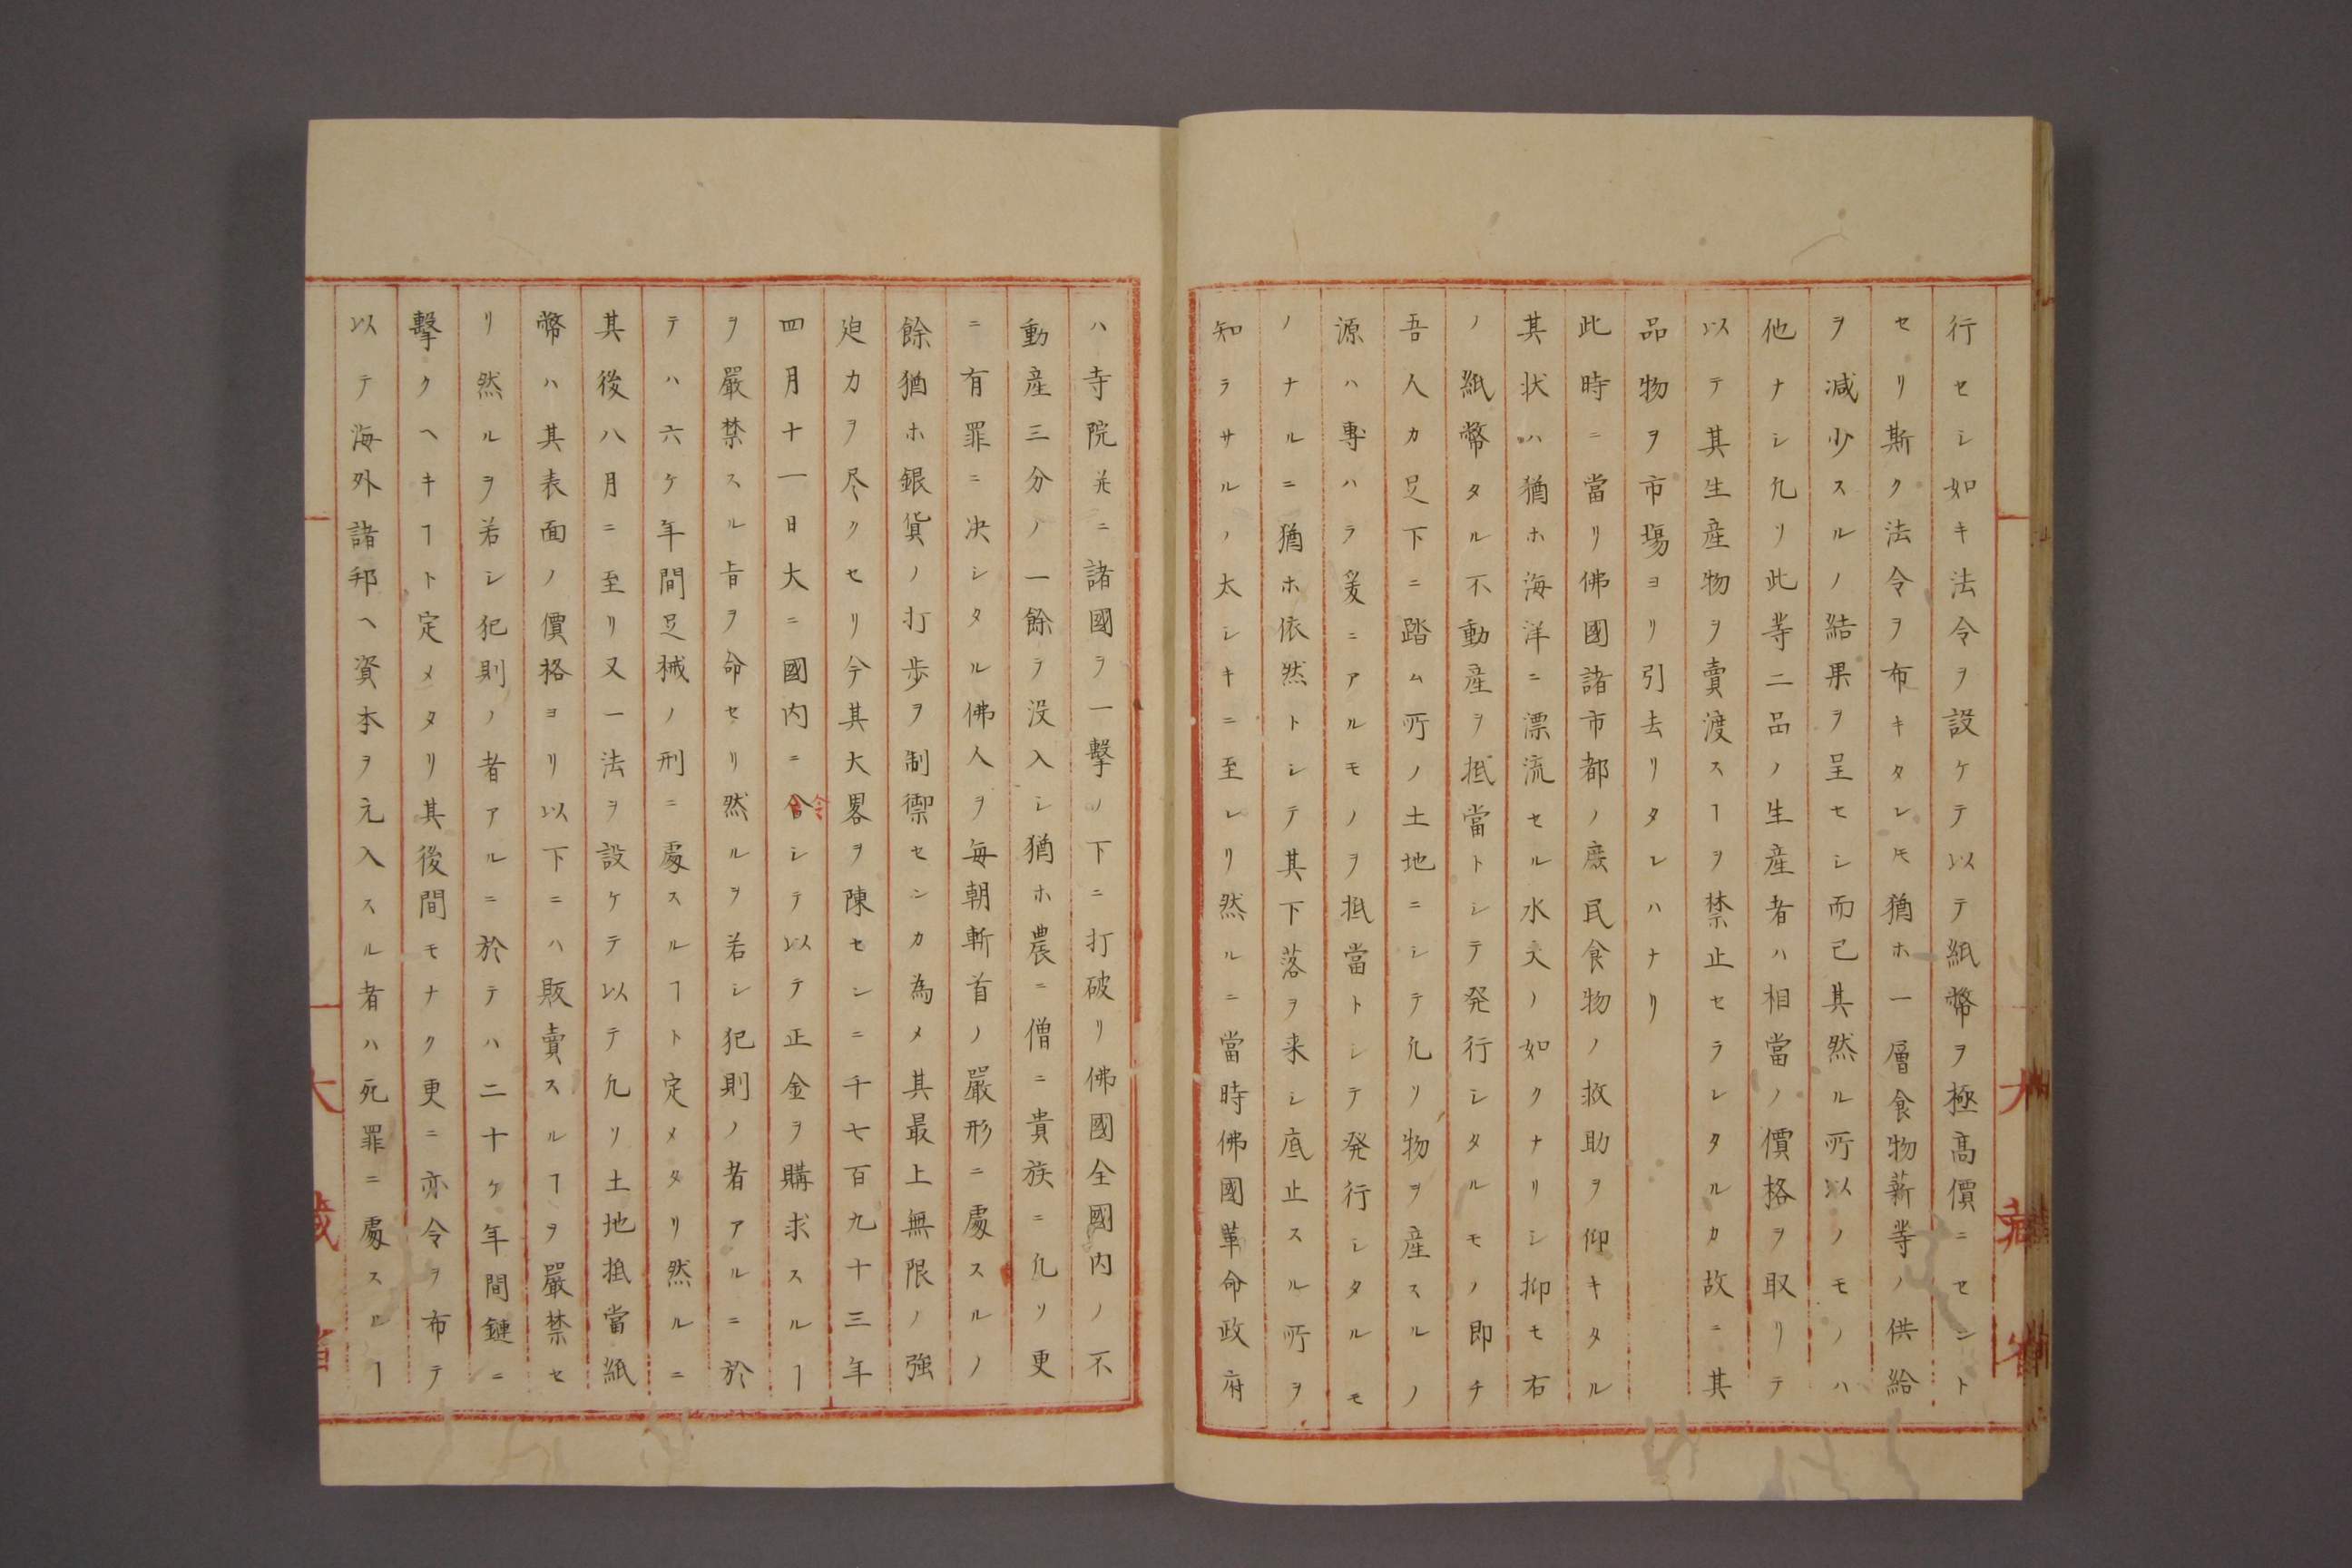 行セシ如キ法令ヲ設ケテ以テ紙幣ヲ極高價ニセント
セリ斯ク法令ヲ布キタレ𪜈猶ホ一層食物薪等ノ供給
ヲ減少スルノ結果ヲ呈セシ而已其然ル所以ノモノハ
他ナシ凢ソ此等二品ノ生産者ハ相當ノ價格ヲ取リテ
以テ其生産物ヲ賣渡スヿヲ禁止セラレタルカ故ニ其
品物ヲ市塲ヨリ引去リタレハナリ
此時ニ當リ佛國諸市都ノ庶民食物ノ救助ヲ仰キタル
其状ハ猶ホ海洋ニ漂流セル水夫ノ如クナリシ抑モ右
ノ紙幣タル不動産ヲ抵當トシテ発行シタルモノ即チ
吾人カ足下ニ踏ム所ノ土地ニシテ凢ソ物ヲ産スルノ
源ハ專ハラ爰ニアルモノヲ抵當トシテ発行シタルモ
ノナルニ猶ホ依然トシテ其下落ヲ来シ底止スル所ヲ
知ラサルノ太シキニ至レリ然ルニ當時佛國革命政府
ハ寺院並ニ諸國ヲ一擊ノ下ニ打破リ佛國全國内ノ不
動産三分ノ一餘ヲ没入シ猶ホ農ニ僧ニ貴族ニ凢ソ更
ニ有罪ニ决シタル佛人ヲ毎朝斬首ノ嚴形ニ處スルノ
餘猶ホ銀貨ノ打歩ヲ制禦センカ為メ其最上無限ノ強
迫力ヲ尽クセリ今其大畧ヲ陳センニ千七百九十三年
四月十一日大ニ國内ニ令シテ以テ正金ヲ購求スルヿ
ヲ嚴禁スル旨ヲ命セリ然ルヲ若シ犯則ノ者アルニ於
テハ六ケ年間足械ノ刑ニ處スルヿト定メタリ然ルニ
其後八月ニ至リ又一法ヲ設ケテ以テ凢ソ土地抵當紙
幣ハ其表面ノ價格ヨリ以下ニハ販賣スルヿヲ嚴禁セ
リ然ルヲ若シ犯則ノ者アルニ於テハ二十ケ年間鏈ニ
擊クヘキヿト定メタリ其後間モナク更ニ亦令ヲ布テ
以テ海外諸邦ヘ資本ヲ元入スル者ハ死罪ニ處スルヿ
大藏省